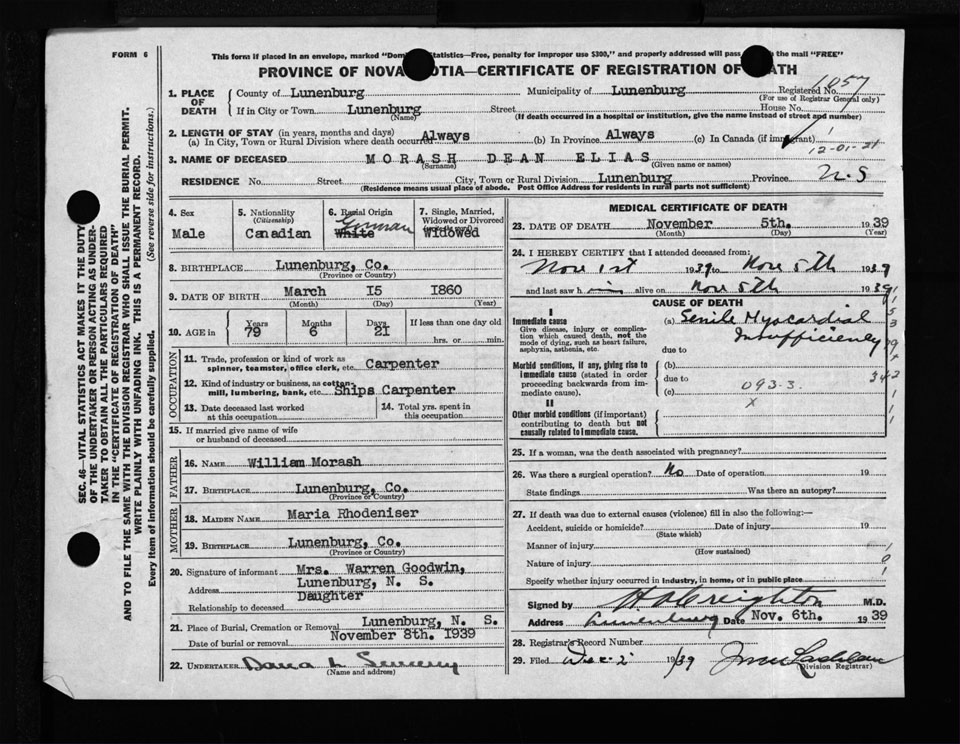 FORM 6
This form if placed in an envelope, marked "Dom Statistics—Free, penalty for improper use $300," and properly addressed will pass the mail "FREE"
PROVINCE OF NOVA OTIA—CERTIFICATE OF REGISTRATION OF DEATH
1. PLACE OF DEATH County of Lunenburg Municipality of Lunenburg Registered No. 1057
(For use of Registrar General only)
If in City or Town Lunenburg Street House No.
(Name) (If death occurred in a hospital or institution, give the name instead of street and number)
2. LENGTH OF STAY (in years, months and days)
(a) In City, Town or Rural Division where death occurred Always (b) In Province Always (c) In Canada (if immigrant)
12-01-21
3. NAME OF DECEASED MORASH DEAN ELIAS
(Surname) (Given name or names)
RESIDENCE No. Street City, Town or Rural Division Lunenburg Province N.S
(Residence means usual place of abode. Post Office Address for residents in rural parts not sufficient)
4. Sex 5. Nationality 6. Racial Origin 7. Single, Married, Widowed or Divorced
(Citizenship)
Male Canadian White German Widowed
8. BIRTHPLACE Lunenburg, Co.
(Province or Country)
9. DATE OF BIRTH March 15 1860
(Month) (Day) (Year)
10. AGE in Years Months Days If less than one day old
79 6 21 hrs. or min.
OCCUPATION
11. Trade, profession or kind of work as spinner, teamster, office clerk, etc. Carpenter
12. Kind of industry or business, as cotton mill, lumbering, bank, etc. Ships Carpenter
13. Date deceased last worked at this occupation
14. Total yrs. spent in this occupation
15. If married give name of wife or husband of deceased
FATHER
16. NAME William Morash
17. BIRTHPLACE Lunenburg, Co.
(Province or Country)
MOTHER
18. MAIDEN NAME Maria Rhodeniser
19. BIRTHPLACE Lunenburg, Co.
(Province or Country)
20. Signature of informant Mrs. Warren Goodwin,
Address Lunenburg, N. S.
Relationship to deceased Daughter
21. Place of Burial, Cremation or Removal Lunenburg, N. S.
Date of burial or removal November 8th. 1939
22. UNDERTAKER
(Name and address)
MEDICAL CERTIFICATE OF DEATH
23. DATE OF DEATH November 5th. 1939
(Month) (Day) (Year)
24. I HEREBY CERTIFY that I attended deceased from:
Nov 1st 1939 to Nov 5th 1939
and last saw him alive on Nov 5th 1939
CAUSE OF DEATH
I
Immediate cause (a) Senile Myocardial
Give disease, injury or complication which caused death, not the mode of dying, such as heart failure, asphyxia, asthenia, etc. Insufficiency
due to
Morbid conditions, if any, giving rise to immediate cause (stated in order proceeding backwards from immediate cause). (b)
due to
(c) 093-3.
X
II
Other morbid conditions (if important) contributing to death but not causally related to immediate cause.
25. If a woman, was the death associated with pregnancy?
26. Was there a surgical operation? No Date of operation 19
State findings Was there an autopsy?
27. If death was due to external causes (violence) fill in also the following:—
Accident, suicide or homicide? Date of injury 19
(State which)
Manner of injury
(How sustained)
Nature of injury
Specify whether injury occurred in industry, in home, or in public place
Signed by H A Creighton M.D.
Address Lunenburg Date Nov. 6th. 1939
28. Registrar's Record Number
29. Filed Dec 2 1939
(Division Registrar)
SEC. 46—VITAL STATISTICS ACT MAKES IT THE DUTY
OF THE UNDERTAKER OR PERSON ACTING AS UNDER-
TAKER TO OBTAIN ALL THE PARTICULARS REQUIRED
IN THE "CERTIFICATE OF REGISTRATION OF DEATH"
AND TO FILE THE SAME WITH THE DIVISION REGISTRAR WHO SHALL ISSUE THE BURIAL PERMIT.
WRITE PLAINLY WITH UNFADING INK. THIS IS A PERMANENT RECORD.
Every item of information should be carefully supplied. (See reverse side for instructions.)